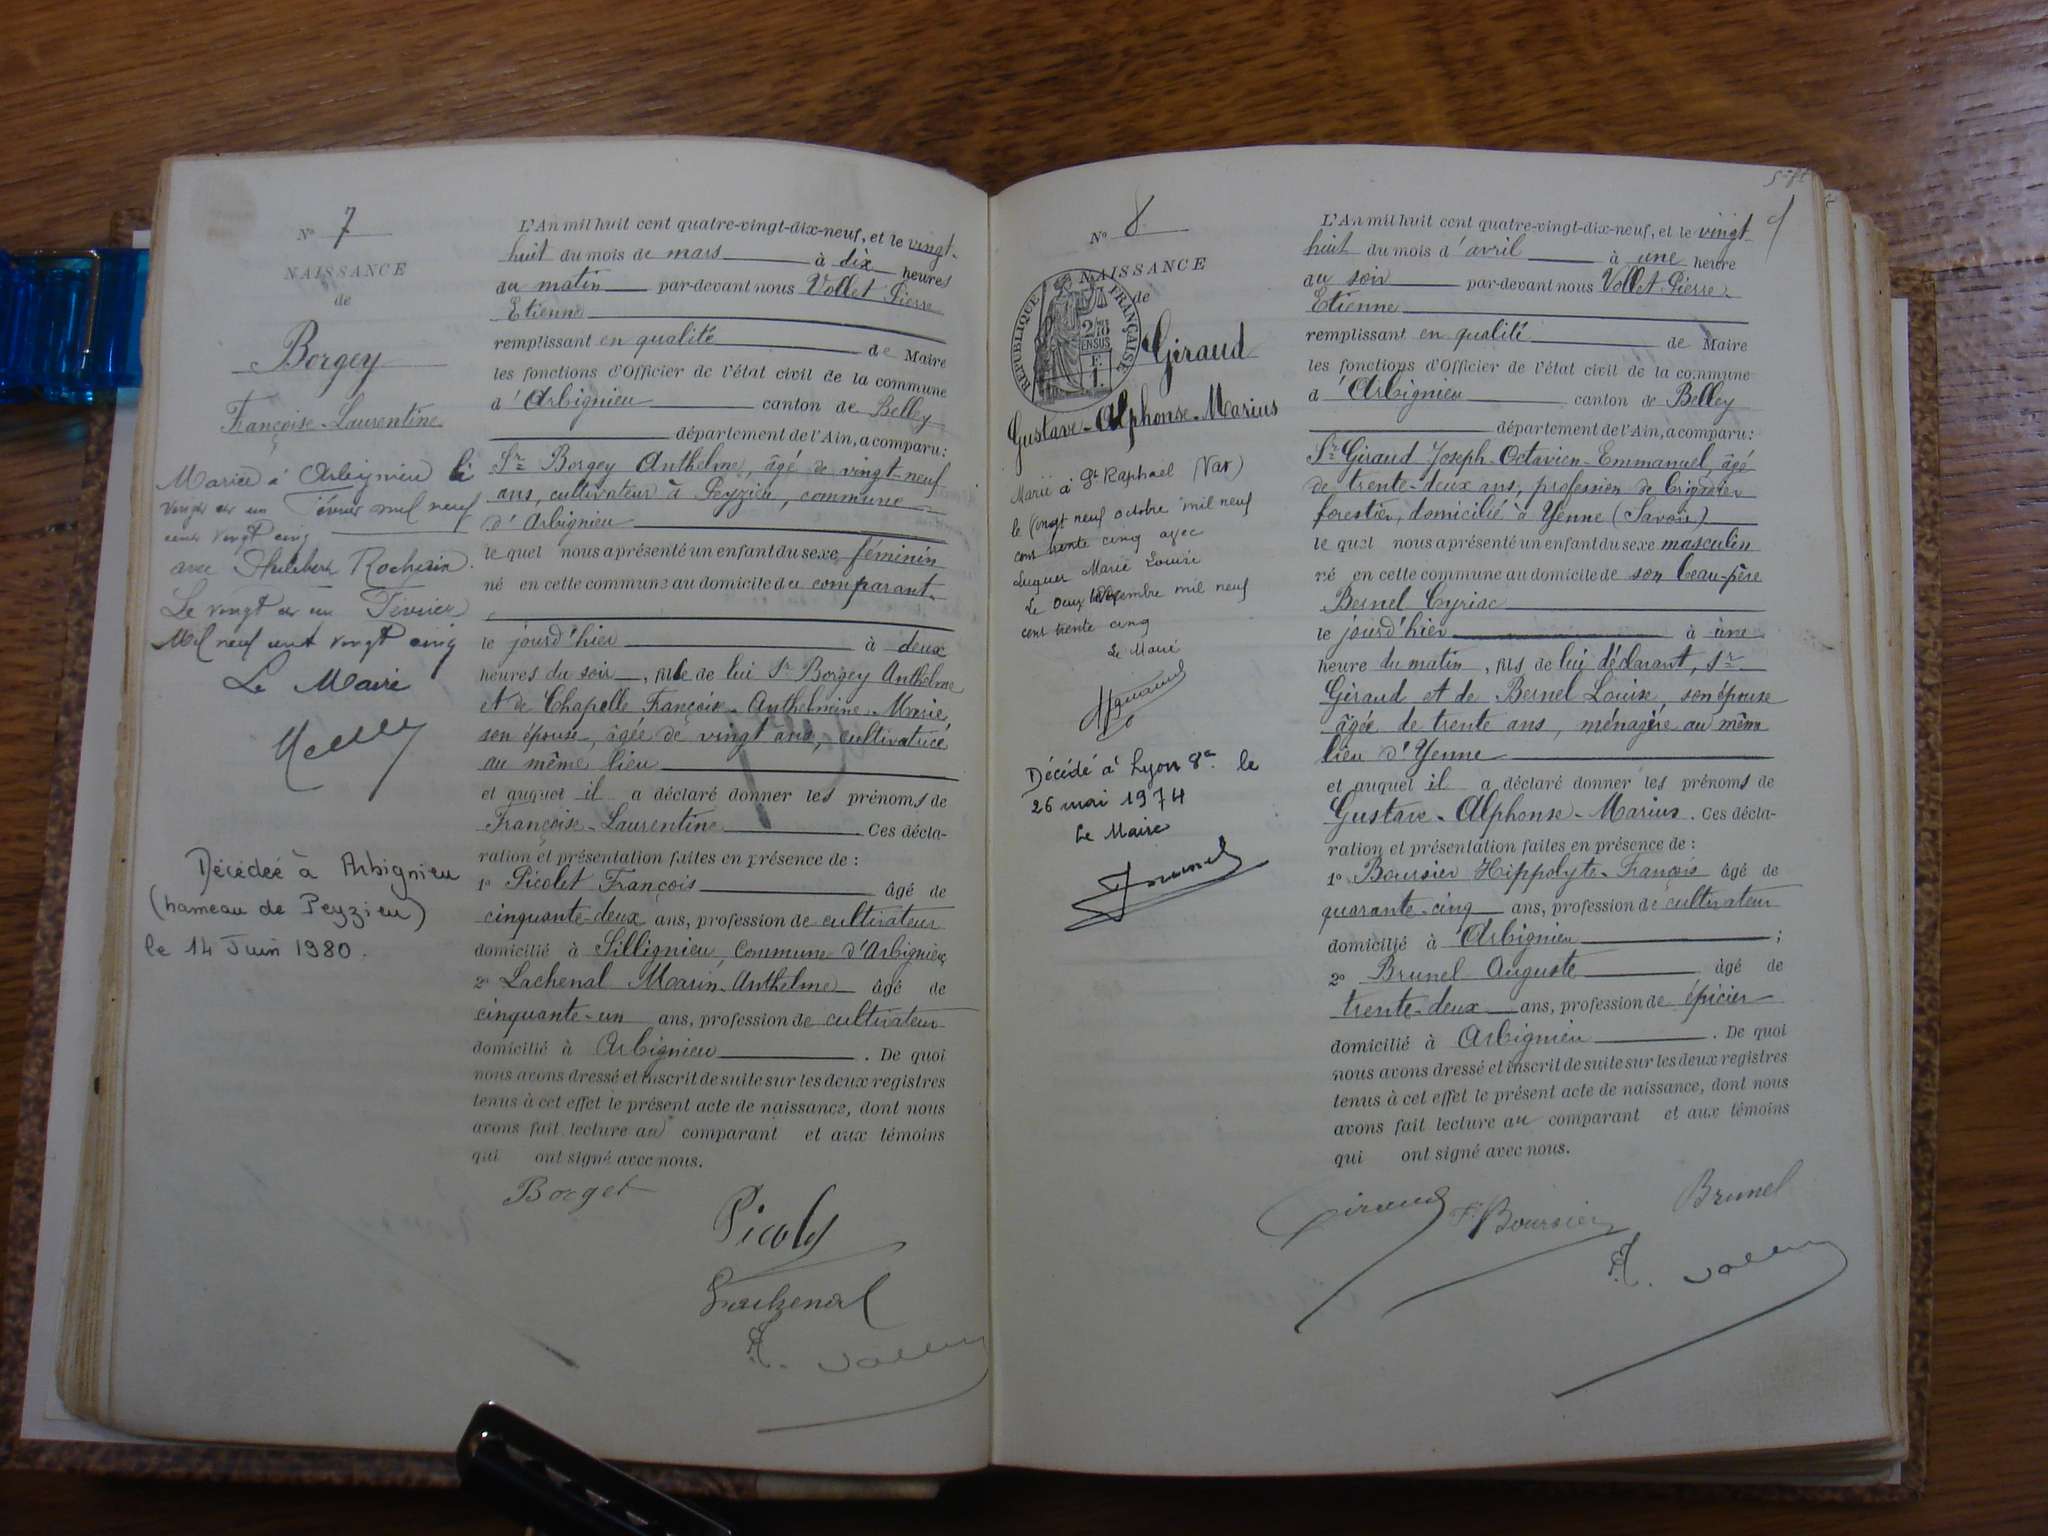 Nº 7
NAISSANCE
de
Borgey
Françoise-Laurentine
Mariée à Arbignieu le
vingt et un février mil neuf
cent vingt cinq
avec Philibert Rochaix
Le vingt et un Février
Mil neuf cent vingt cinq
Le Maire
Décédée à Arbignieu
(hameau de Peyzieu)
le 14 Juin 1980.
L'An mil huit cent quatre-vingt-dix-neuf, et le vingt-
huit du mois de mars à dix heures
du matin par-devant nous Vollet Pierre
Etienne
remplissant en qualité de Maire
les fonctions d'Officier de l'état civil de la commune
d'Arbignieu canton de Belley
département de l'Ain, a comparu:
Sr Borgey Anthelme, âgé de vingt-neuf
ans, cultivateur à Peyzieu, commune
d'Arbignieu
le quel nous a présenté un enfant du sexe féminin
né en cette commune au domicile du comparant.
le jourd'hier à deux
heures du soir, fille de lui Sr Borgey Anthelme
et de Chapelle Françoise-Anthelmine-Marie,
son épouse, âgée de vingt ans, cultivatrice
au même lieu
et auquel il a déclaré donner les prénoms de
Françoise-Laurentine Ces décla-
ration et présentation faites en présence de :
1º Picolet François âgé de
cinquante-deux ans, profession de cultivateur
domicilié à Sillignieu, Commune d'Arbignieu;
2º Lachenal Marin-Anthelme âgé de
cinquante-un ans, profession de cultivateur
domicilié à Arbignieu. De quoi
nous avons dressé et inscrit de suite sur les deux registres
tenus à cet effet le présent acte de naissance, dont nous
avons fait lecture au comparant et aux témoins
qui ont signé avec nous.
Borget
Picolet
Lachenal
E. Vollet
Nº 8
NAISSANCE
de
RÉPUBLIQUE FRANÇAISE
2/10
EN SUS
F.
1.
Giraud
Gustave-Alphonse-Marius
Marié à St Raphael (Var)
le vingt neuf octobre mil neuf
cent trente cinq avec
Luquer Marie Louise
Le deux novembre mil neuf
cent trente cinq
Le Maire
Décédé à Lyon 8e le
26 mai 1974
Le Maire
L'An mil huit cent quatre-vingt-dix-neuf, et le vingt
huit du mois d'avril à une heure
du soir par-devant nous Vollet Pierre-
Etienne
remplissant en qualité de Maire
les fonctions d'Officier de l'état civil de la commune
d'Arbignieu canton de Belley
département de l'Ain, a comparu:
Sr Giraud Joseph-Octavien-Emmanuel, âgé
de trente-deux ans, profession de brigadier
forestier, domicilié à Yenne (Savoie)
le quel nous a présenté un enfant du sexe masculin
né en cette commune au domicile de son beau-père
Besnel Cyriac
le jourd'hier à une
heure du matin, fils de lui déclarant, Sr
Giraud et de Besnel Louise, son épouse
âgée de trente ans, ménagère au même
lieu d'Yenne
et auquel il a déclaré donner les prénoms de
Gustave-Alphonse-Marius. Ces décla-
ration et présentation faites en présence de :
1º Boursier Hippolyte-François âgé de
quarante-cinq ans, profession de cultivateur
domicilié à Arbignieu ;
2º Brunel Auguste âgé de
trente-deux ans, profession de épicier
domicilié à Arbignieu. De quoi
nous avons dressé et inscrit de suite sur les deux registres
tenus à cet effet le présent acte de naissance, dont nous
avons fait lecture au comparant et aux témoins
qui ont signé avec nous.
Giraud F. Boursier Brunel
E. Vollet